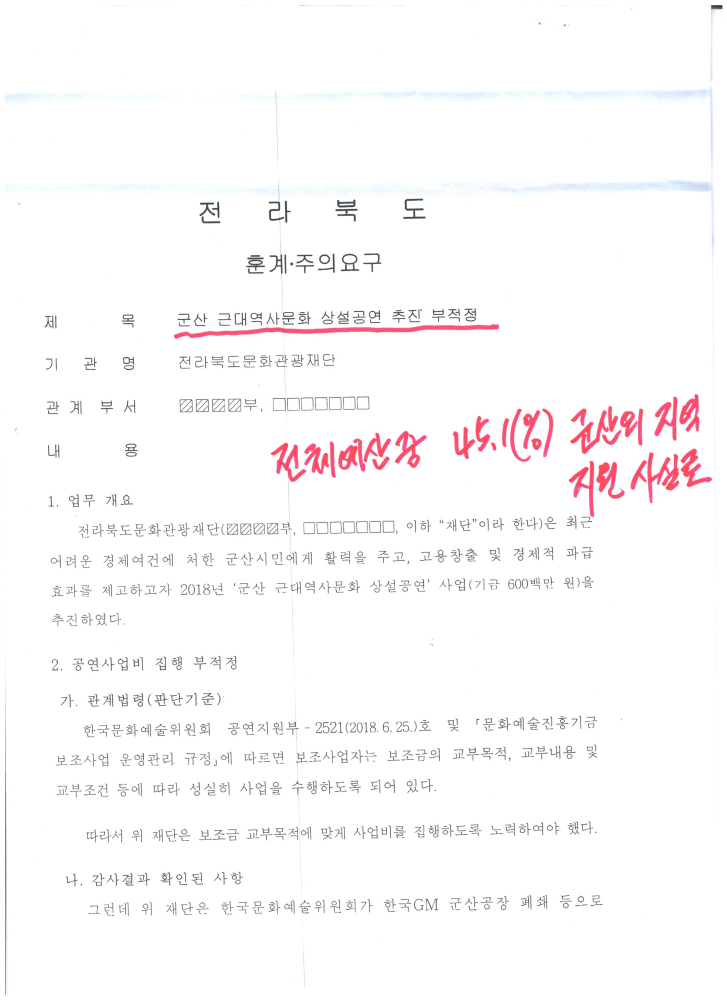 전 라 북 도
훈계·주의요구
제 목 군산 근대역사문화 상설공연 추진 부적정
기 관 명 전라북도문화관광재단
관 계 부 서 ▨▨▨▨부, □□□□□□□
전체예산중 45.1(%) 군산외 지역
지원 사실로
내 용
1. 업무 개요
전라북도문화관광재단(▨▨▨▨부, □□□□□□□, 이하 “재단”이라 한다)은 최근
어려운 경제여건에 처한 군산시민에게 활력을 주고, 고용창출 및 경제적 파급
효과를 제고하고자 2018년 ‘군산 근대역사문화 상설공연’ 사업(기금 600백만 원)을
추진하였다.
2. 공연사업비 집행 부적정
가. 관계법령(판단기준)
한국문화예술위원회 공연지원부－2521(2018.6.25.)호 및 「문화예술진흥기금
보조사업 운영관리 규정」에 따르면 보조사업자는 보조금의 교부목적, 교부내용 및
교부조건 등에 따라 성실히 사업을 수행하도록 되어 있다.
따라서 위 재단은 보조금 교부목적에 맞게 사업비를 집행하도록 노력하여야 했다.
나. 감사결과 확인된 사항
그런데 위 재단은 한국문화예술위원회가 한국GM 군산공장 폐쇄 등으로